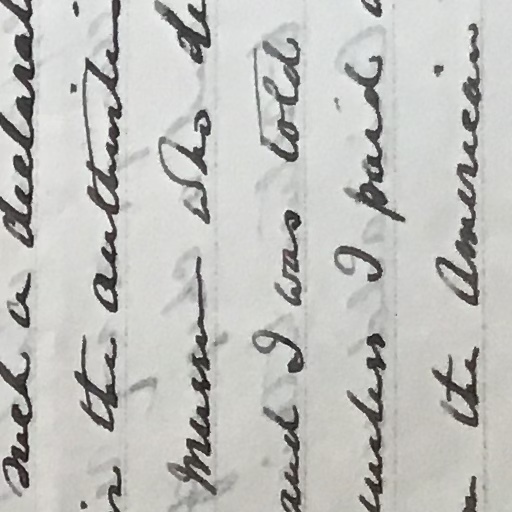 such a declarat
in the authenti
who de
and I was told
unless I paid a
the American